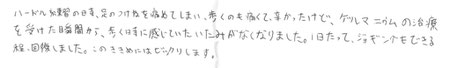 ハードル練習の日す、足のつけねを痛めてしまい、歩くのも痛くて、辛かったけど、ゲルマニウムの治療
を受けた瞬間から、歩く日すに感じていたいたみがなくなりました。1日たって、ジョギングもできる
程、回復しました。このききめにはビックリします。